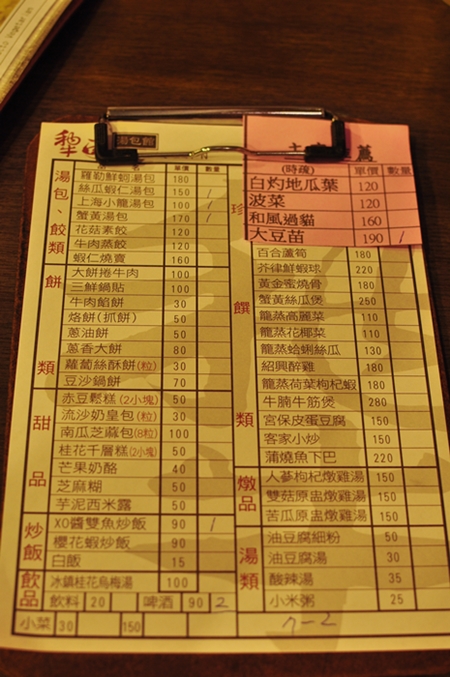 犁 湯包館
湯包、餃類 單價 數量
羅勒鮮蚵湯包 180
絲瓜蝦仁湯包 150 /
上海小籠湯包 100 /
蟹黃湯包 170 /
花菇素餃 120
牛肉蒸餃 120
蝦仁燒賣 160
餅類
大餅捲牛肉 100
三鮮鍋貼 100
牛肉餡餅 30
烙餅(抓餅) 50
蔥油餅 50
蔥香大餅 80
蘿蔔絲酥餅(粒) 30
豆沙鍋餅 70
甜品
赤豆鬆糕(2小塊) 50
流沙奶皇包(粒) 30
南瓜芝麻包(8粒) 100
桂花千層糕(2小塊) 50
芒果奶酪 40
芝麻糊 50
芋泥西米露 50
炒飯
XO醬雙魚炒飯 90 /
櫻花蝦炒飯 90
白飯 15
飲品
冰鎮桂花烏梅湯 100
飲料 20 啤酒 90 2
小菜 30 150
薦
(時蔬) 單價 數量
白灼地瓜葉 120
波菜 120
和風過貓 160
大豆苗 190 /
珍饌類
百合蘆筍 180
芥律鮮蝦球 220
黃金蜜燒骨 180
蟹黃絲瓜煲 250
龍蒸高麗菜 110
龍蒸花椰菜 110
龍蒸蛤蜊絲瓜 130
紹興醉雞 180
龍蒸荷葉枸杞蝦 180
牛腩牛筋煲 280
宮保皮蛋豆腐 180
客家小炒 180
蒲燒魚下巴 220
燉品
人蔘枸杞燉雞湯 150
雙菇原盅燉雞湯 150
苦瓜原盅燉雞湯 150
湯類
油豆腐細粉 50
油豆腐湯 30
酸辣湯 35
小米粥 25
7-2